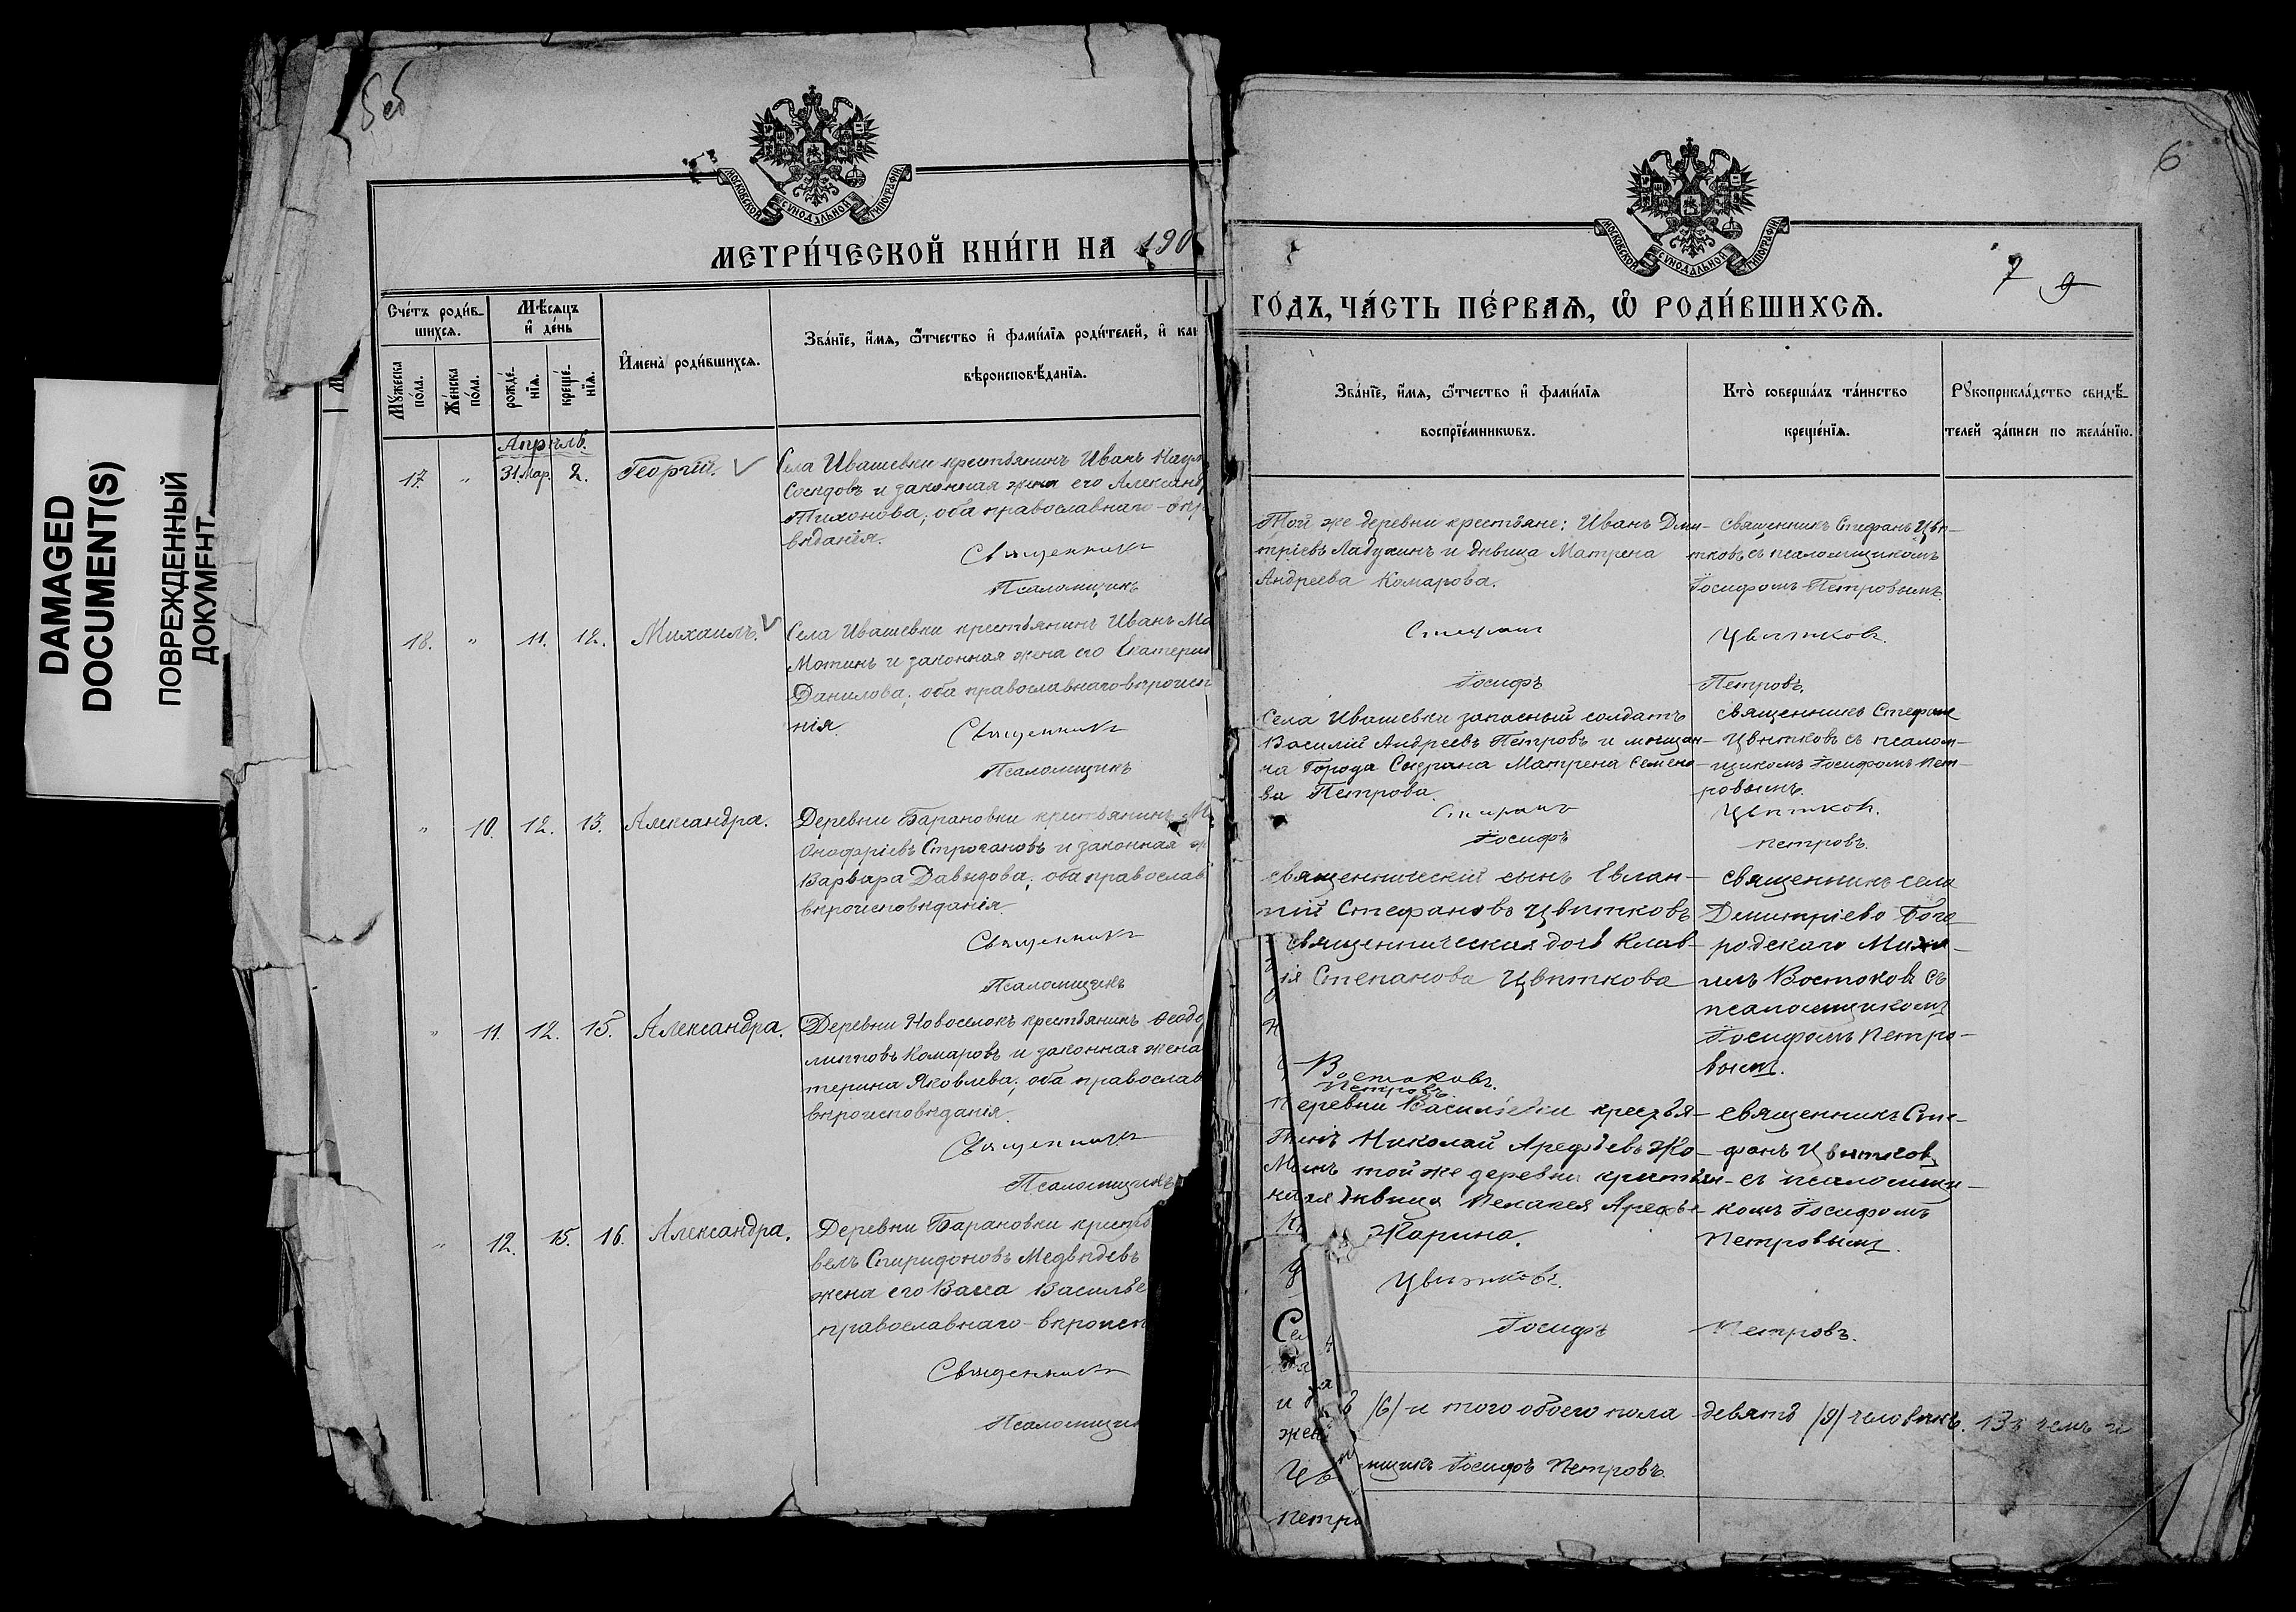 DAMAGED
DOCUMENT(S)
ПОВРЕЖДЕННЫЙ
ДОКУМЕНТ
5об
МОСКОВСКОЙ СѴНОДАЛЬНОЙ ТИПОГРАФІИ
МЕТРИ́ЧЕСКОЙ КНИ́ГИ НА 190
Сче́тъ роди́в-
шихсѧ.
Мѣ́сѧцъ
и҆ де́нь
И҆мена̀ роди́вшихсѧ.
Зва́нїе, и҆́мѧ, ѻ҆́тчество и҆ фами́лїѧ роди́телей, и҆ как
вѣроисповѣ́данїѧ.
Мꙋ́жеска
по́ла.
Же́нска
по́ла.
рожде́-
нїѧ.
креще́-
нїѧ.
Апрѣль.
17. " 31 Мар. 2. Георгій. Села Ивашевки крестьянинъ Иванъ Наум
Сосѣдовъ и законная жена его Александ
Тихонова; оба православнаго-вѣр
вѣданія.
Священникъ
Псаломщикъ
18. " 11. 12. Михаилъ. Села Ивашевки крестьянинъ Иванъ Ма
Мотинъ и законная жена его Екатерин
Данилова; оба православнаго вѣроисп
нія.
Священникъ
Псаломщикъ
" 10. 12. 13. Александра. Деревни Барановки крестьянинъ М
Онофріевъ Строгановъ и законная ж
Варвара Давыдова; оба православ
вѣроисповѣданія.
Священникъ
Псаломщикъ
" 11. 12. 15. Александра. Деревни Новоселокъ крестьянинъ Ѳеодо
липповъ Комаровъ и законная жена
терина Яковлева; оба православ
вѣроисповѣданія.
Священникъ
Псаломщикъ
" 12. 15. 16. Александра. Деревни Барановки крестья
велъ Спиридоновъ Медвѣдевъ
жена его Васса Василье
православнаго-вѣроисп
Священникъ
Псаломщик
6
МОСКОВСКОЙ СѴНОДАЛЬНОЙ ТИПОГРАФІИ
7 9
ГО́ДЪ, ЧА́СТЬ ПЕ́РВАѦ, Ѽ РОДИ́ВШИХСѦ.
Зва́нїе, и҆́мѧ, ѻ҆́тчество и҆ фами́лїѧ
воспрїе́мникѡвъ.
Кто̀ соверша́лъ та́инство
креще́нїѧ.
Рꙋкоприкла́дство свидѣ́-
телей за́писи по жела́нїю.
Той же деревни крестьяне: Иванъ Дми-
тріевъ Ладухинъ и дѣвица Матрена
Андреева Комарова.
Священникъ Стефанъ Цвѣ-
тковъ съ псаломщикомъ
Іосифомъ Петровымъ.
Стефанъ Цвѣтковъ.
Іосифъ Петровъ.
Села Ивашевки запасный солдатъ
Василій Андреевъ Петровъ и мѣщан-
ка города Сызрана Матрена Семено-
ва Петрова.
Священникъ Стефанъ
Цвѣтковъ съ псалом-
щикомъ Іосифомъ Пет-
ровымъ.
Стефанъ Цвѣтковъ.
Іосифъ Петровъ.
Священническій сынъ Евлам-
пій Стефановъ Цвѣтковъ
священническая дочь Клав-
ія Степанова Цвѣткова
Священникъ села
Димитріево Бого-
родскаго Миха-
илъ Востоковъ съ
псаломщикомъ
Іосифомъ Петро-
вымъ.
Востоковъ.
Петровъ.
еревни Васильевки крестья-
нинъ Николай Арефьевъ Жа-
той же деревни крестьян-
ская дѣвица Пелагея Арефье-
Жарина.
Священникъ Сте-
фанъ Цвѣтковъ
съ псаломщи-
комъ Іосифомъ
Петровымъ.
Цвѣтковъ.
Іосифъ Петровъ.
Сел
/6/ и того обоего пола девять /9/ человѣкъ. Въ чемъ и
жен
мщикъ Іосифъ Петровъ.
Цв
петро